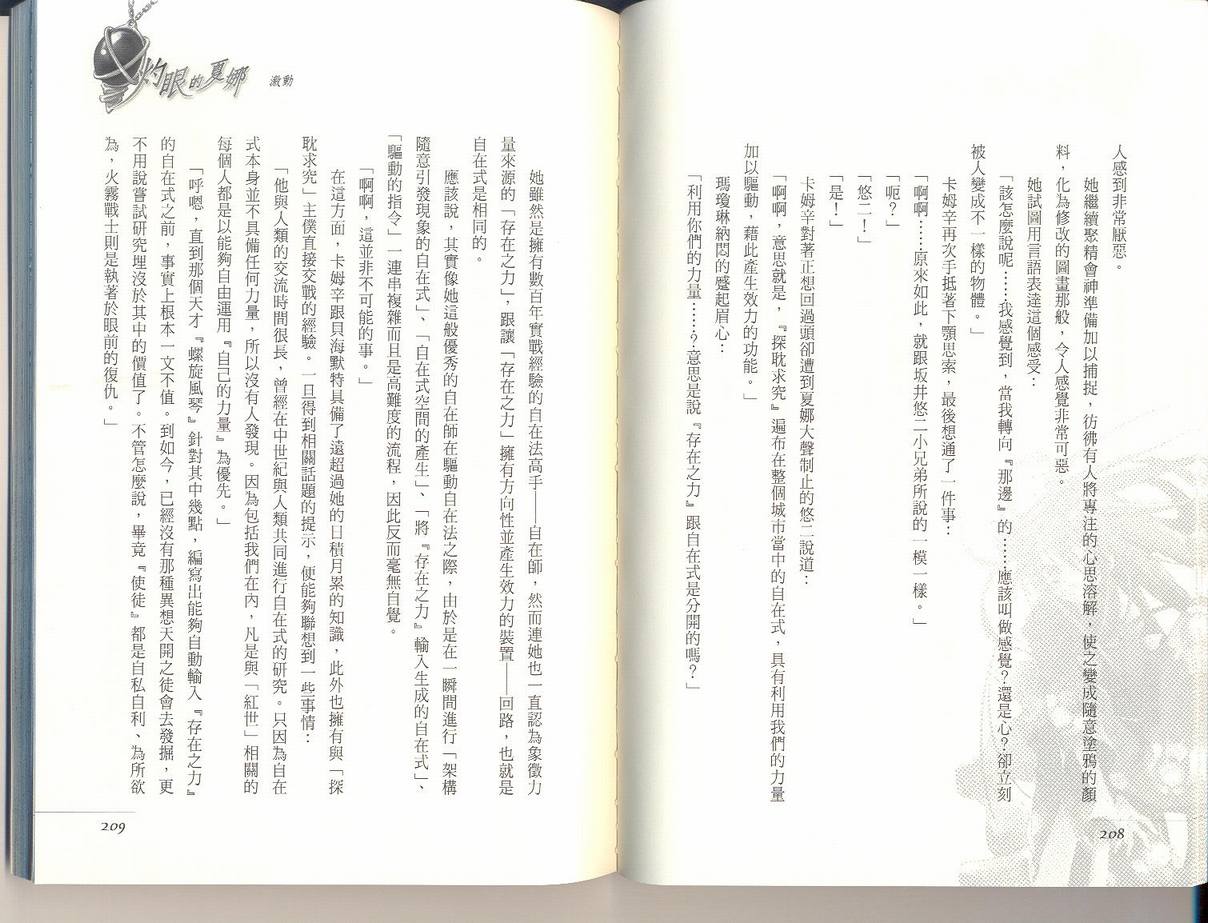 人感到非常厭惡。
她繼續聚精會神準備加以捕捉，彷彿有人將專注的心思溶解，使之變成隨意塗鴉的顏
料，化為修改的圖畫那般，令人感覺非常可惡。
她試圖用言語表達這個感受：
「該怎麼說呢……我感覺到，當我轉向『那邊』的……應該叫做感覺？還是心？卻立刻
被人變成不一樣的物體。」
卡姆辛再次手抵著下顎思索，最後想通了一件事：
「啊啊……原來如此，就跟坂井悠二小兄弟所說的一模一樣。」
「呃？」
「悠二！」
「是！」
卡姆辛對著正想回過頭卻遭到夏娜大聲制止的悠二說道：
「啊啊，意思就是，『探耽求究』遍布在整個城市當中的自在式，具有利用我們的力量
加以驅動，藉此產生效力的功能。」
瑪瓊琳納悶的蹙起眉心：
「利用你們的力量……？意思是說『存在之力』跟自在式是分開的嗎？」
208
灼眼的夏娜 激動
她雖然是擁有數百年實戰經驗的自在法高手——自在師，然而連她也一直認為象徵力
量來源的「存在之力」，跟讓「存在之力」擁有方向性並產生效力的裝置——回路，也就是
自在式是相同的。
應該說，其實像她這般優秀的自在師在驅動自在法之際，由於是在一瞬間進行「架構
隨意引發現象的自在式」、「自在式空間的產生」、「將『存在之力』輸入生成的自在式」、
「驅動的指令」一連串複雜而且是高難度的流程，因此反而毫無自覺。
「啊啊，這並非不可能的事。」
在這方面，卡姆辛跟貝海默特具備了遠超過她的日積月累的知識，此外也擁有與「探
耽求究」主僕直接交戰的經驗。一旦得到相關話題的提示，便能夠聯想到一些事情：
「他與人類的交流時間很長，曾經在中世紀與人類共同進行自在式的研究。只因為自在
式本身並不具備任何力量，所以沒有人發現。因為包括我們在內，凡是與「紅世」相關的
每個人都是以能夠自由運用『自己的力量』為優先。」
「呼嗯，直到那個天才『螺旋風琴』針對其中幾點，編寫出能夠自動輸入『存在之力』
的自在式之前，事實上根本一文不值。到如今，已經沒有那種異想天開之徒會去發掘，更
不用說嘗試研究埋沒於其中的價值了。不管怎麼說，畢竟『使徒』都是自私自利、為所欲
為，火霧戰士則是執著於眼前的復仇。」
209